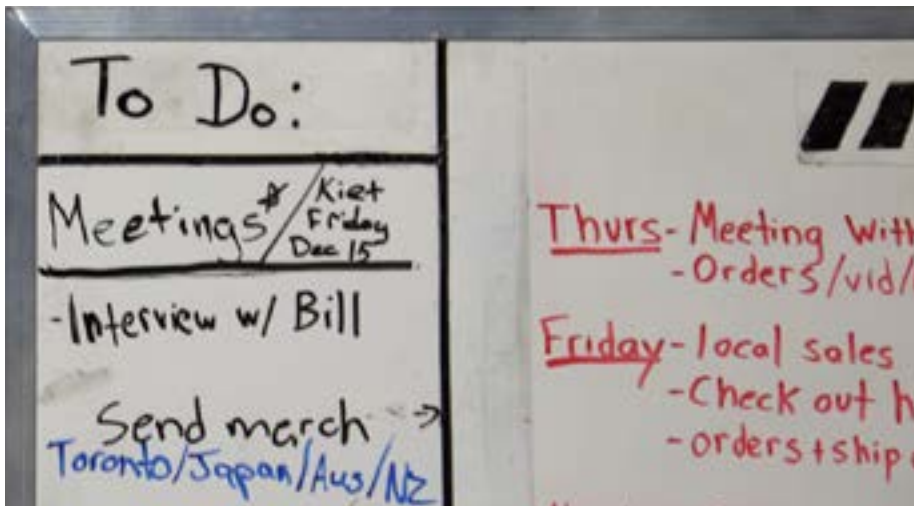 To Do:
Meetings*
Kiet
Friday
Dec 15
-Interview w/ Bill
Send march →
Toronto/Japan/Aus/NZ
Thurs- Meeting With
-Orders/vid/
Friday- local sales
-Check out h
-orders+ship